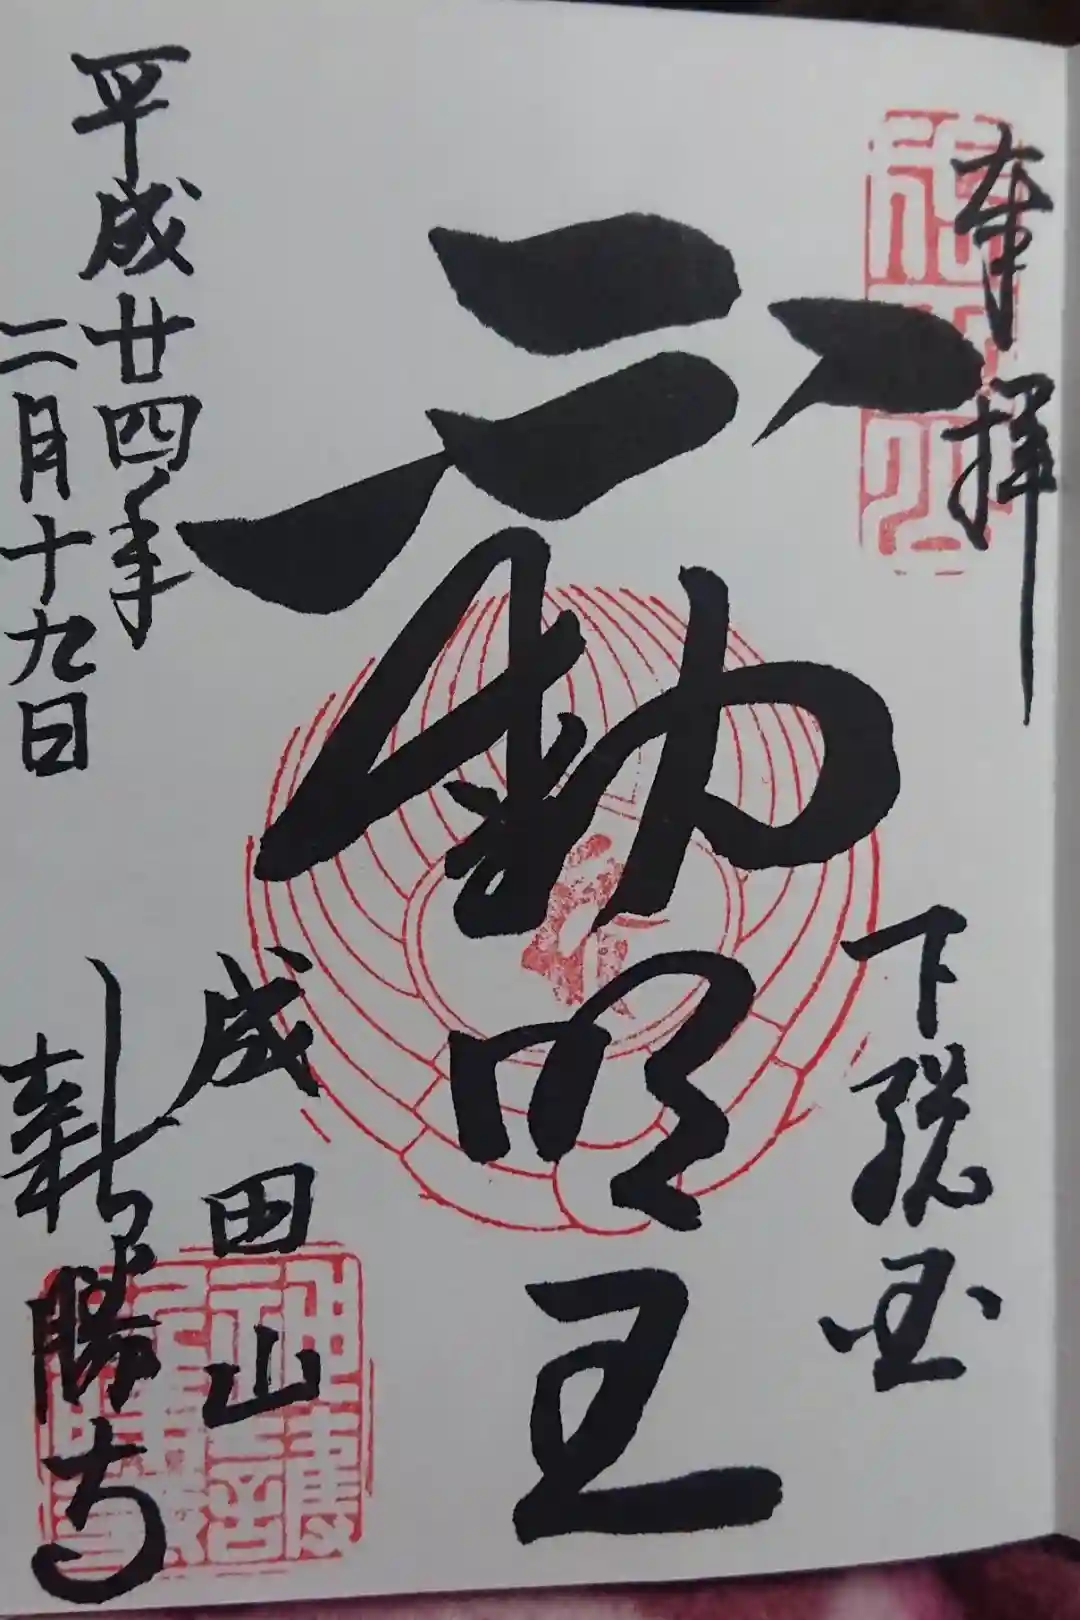 奉拝
下総国
不動明王
成田山
新勝寺
平成廿四年
二月十九日